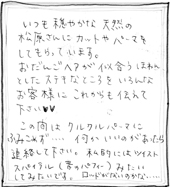 いつも穏やかな 天然の
松原さんに カットや パーマを
してもらっています。
おだんごヘアが 似合う ほんわ
とした ステキなところを いろんな
お客様に これからも 伝えて
下さい♥♥
この間は クルクルパーマに
ふみこめず… 何か いいのがあったら
連絡して下さい。 私的には ツイスト
スパイラル (昔のパフィー) みたいに
してみたいです。 ロードがないのかな…